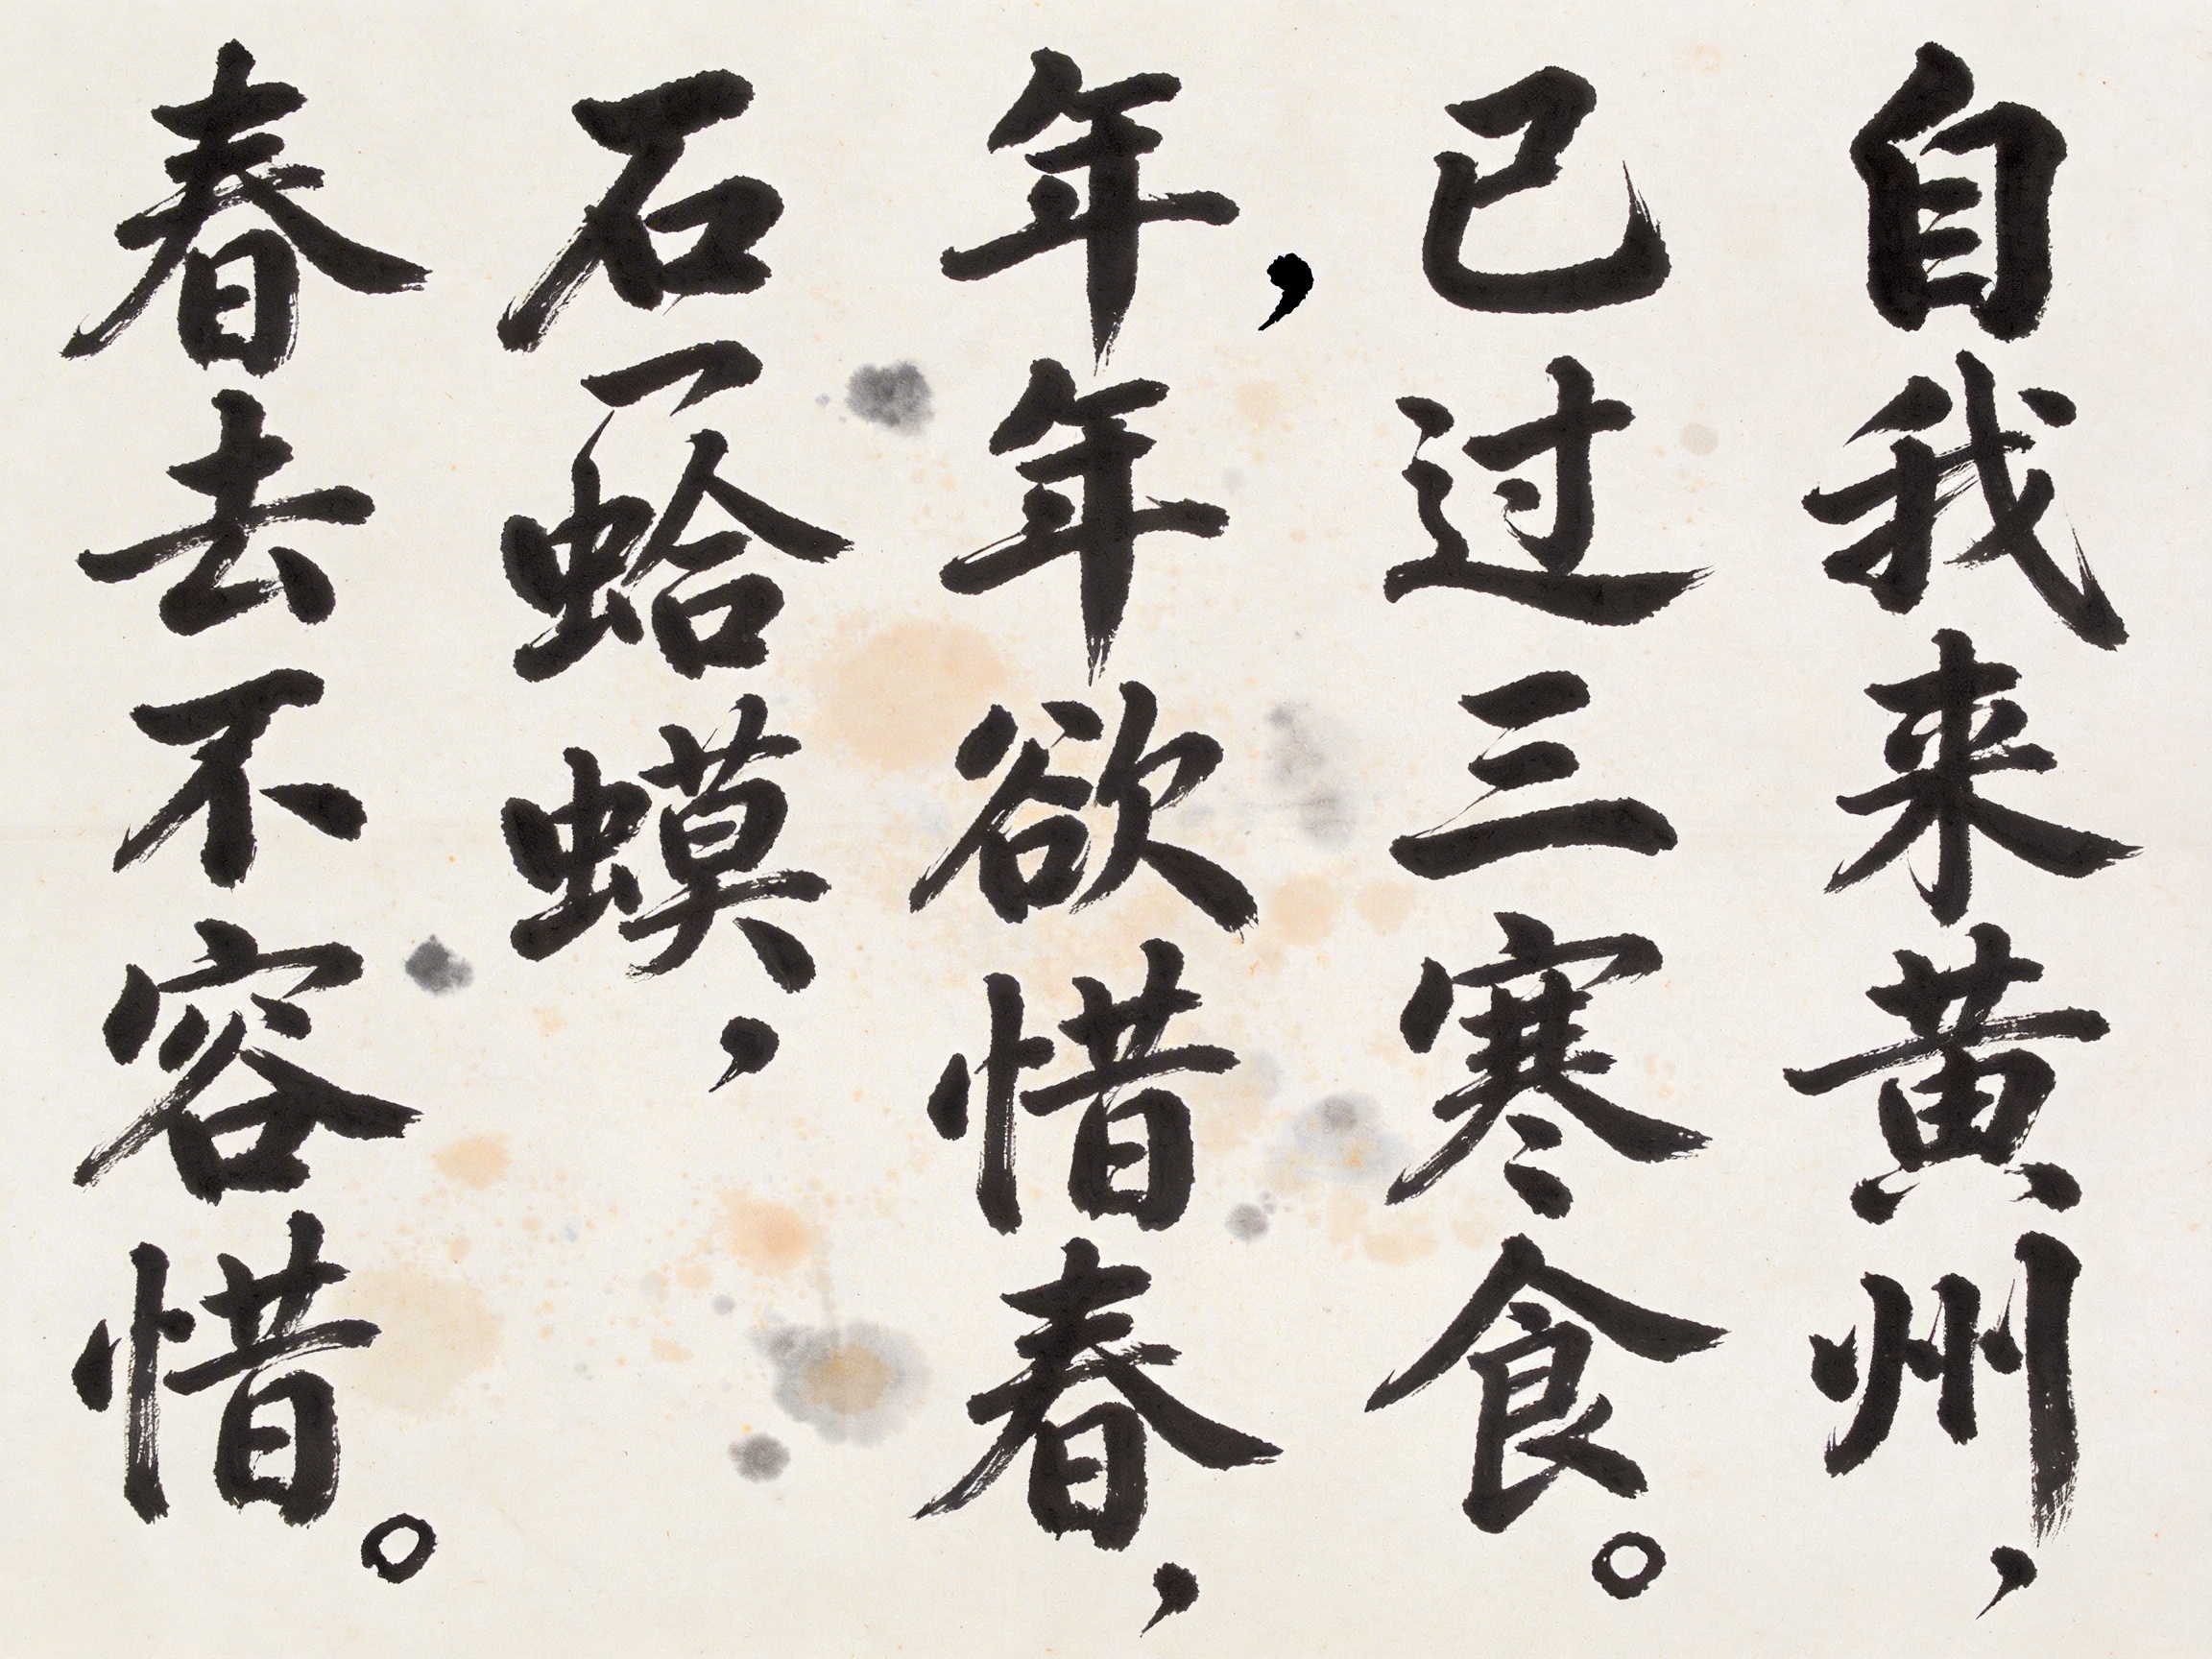 自我来黄州，
已过三寒食。
年，年欲惜春，
石一蛤蟆，
春去不容惜。